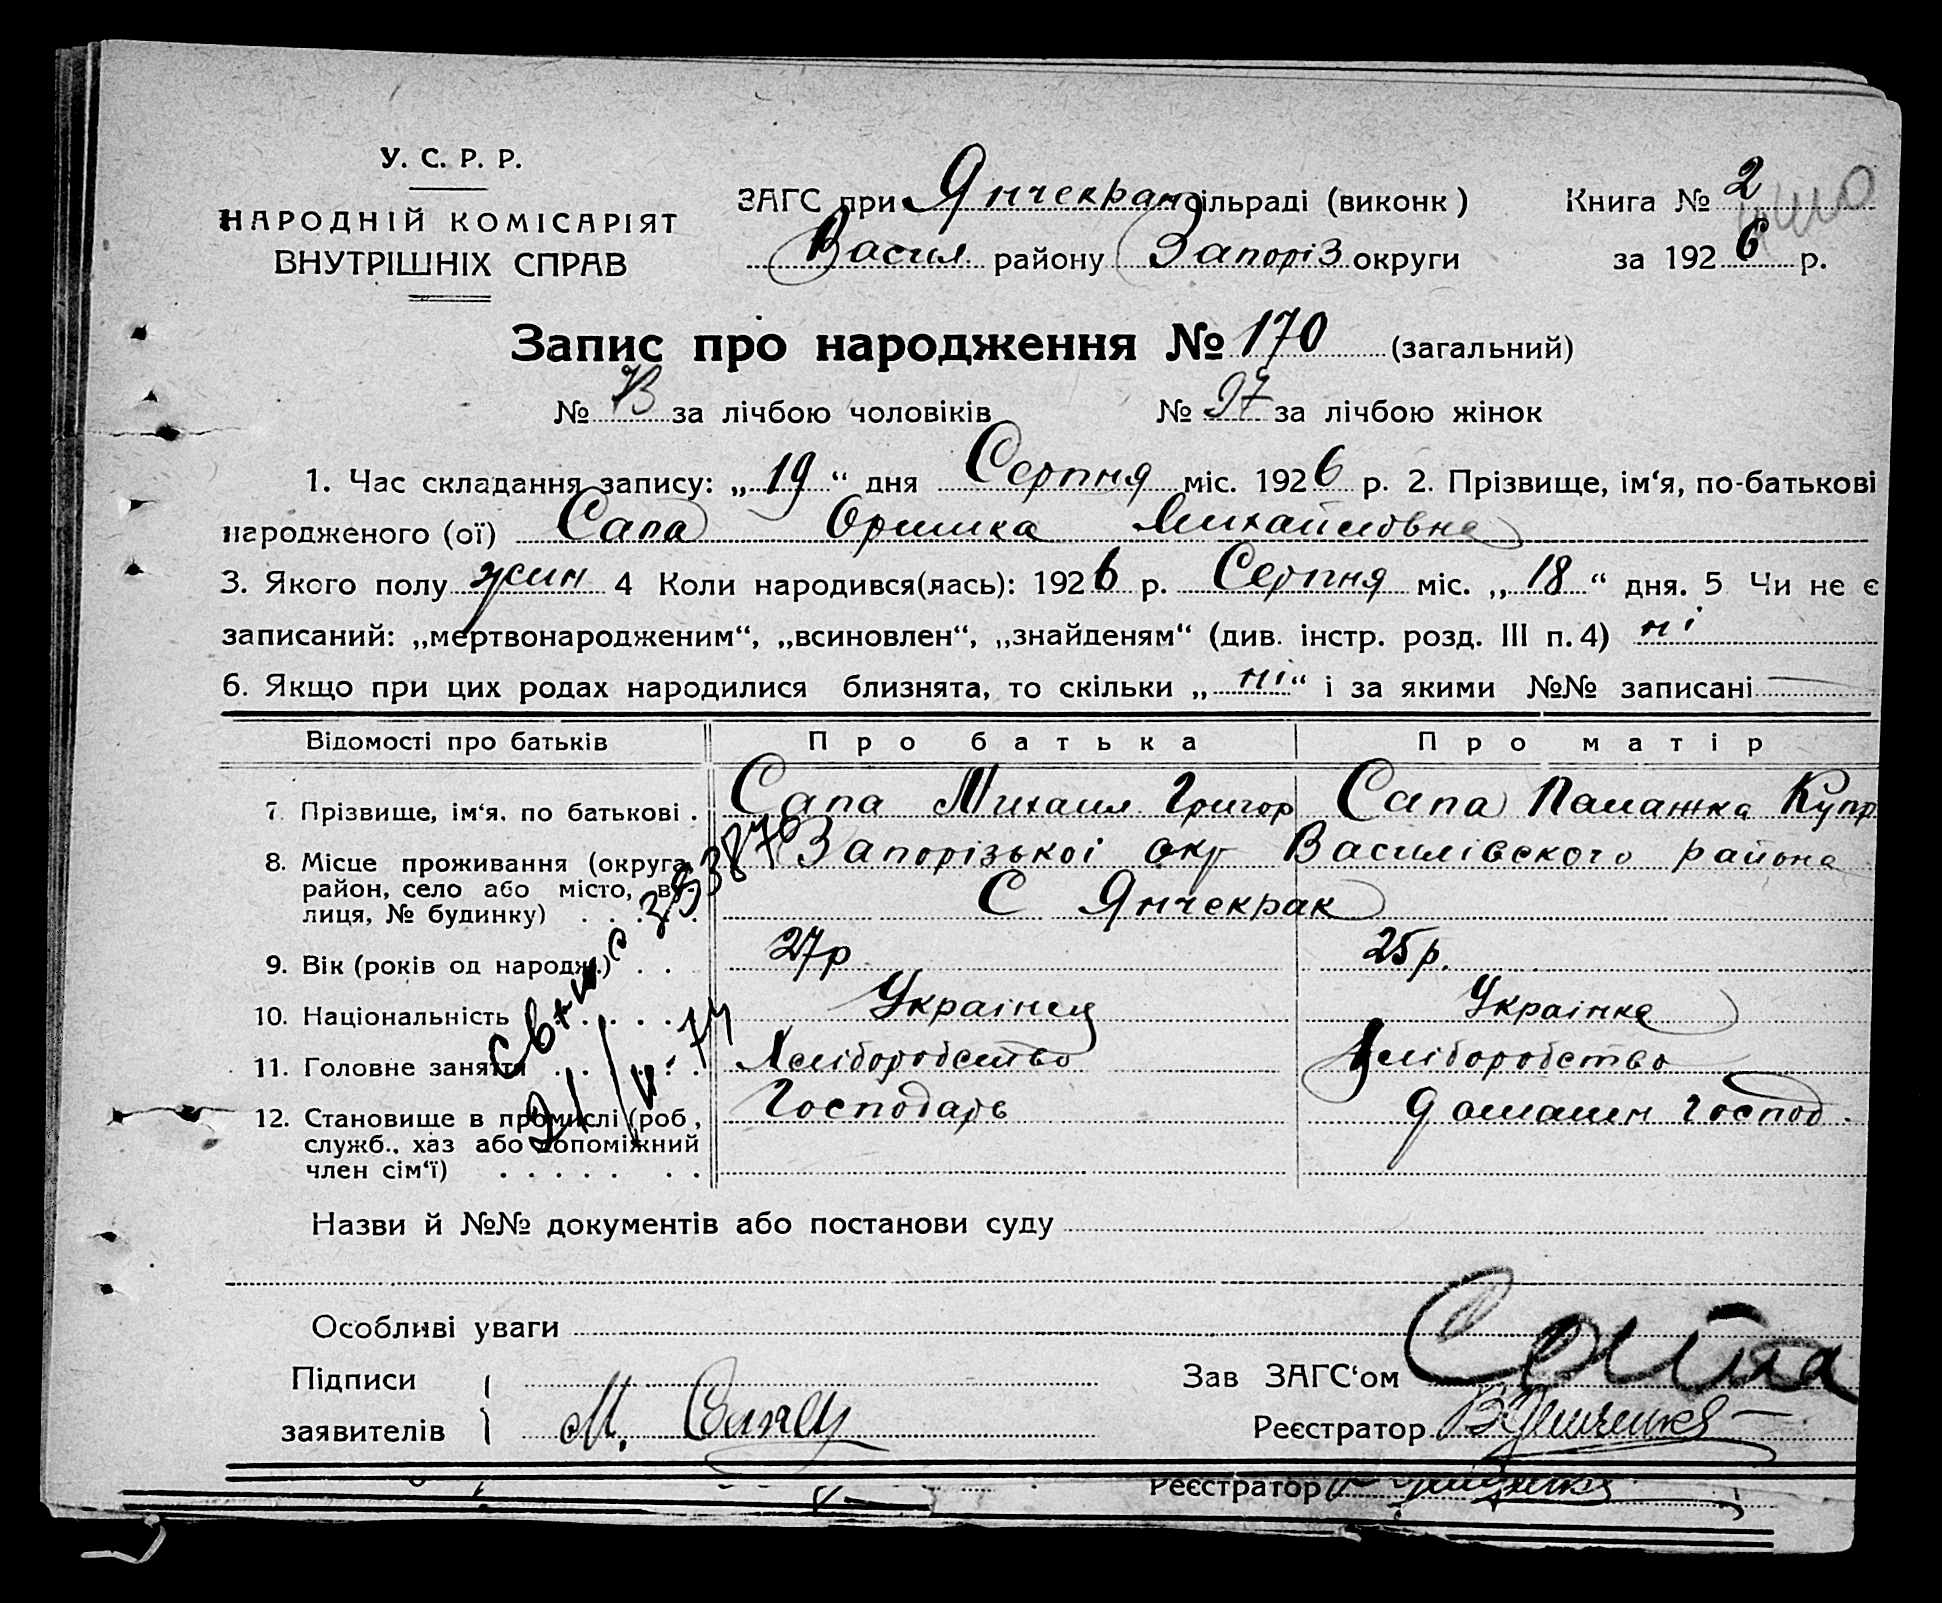 У. С. Р. Р.
НАРОДНІЙ КОМІСАРІЯТ
ВНУТРІШНІХ СПРАВ
ЗАГС при Янчекрак сільраді (виконк)
Васил району Запоріз округи
Книга № 2
за 1926 р.
Запис про народження № 170 (загальний)
№ за лічбою чоловіків № 97 за лічбою жінок
1. Час складання запису: „19“ дня Серпня міс. 1926 р. 2. Прізвище, ім‘я, по-батькові
народженого (ої) Сапа Оришка Михайловна
3. Якого полу жин 4 Коли народився(лась): 1926 р. Серпня міс. „18“ дня. 5 Чи не є
записаний: „мертвонародженим“, „всиновлен“, „знайденям“ (див. інстр. розд. III п. 4) ні
6. Якщо при цих родах народилися близнята, то скільки „ні“ і за якими №№ записані
Відомості про батьків Про батька Про матір
7. Прізвище, ім‘я. по батькові . Сапа Михаил Григор Сапа Палажка Купр
8. Місце проживання (округа, район, село або місто, вулиця, № будинку) Запорізькоі окр Василівского района
С Янчекрак
9. Вік (років од народж.) 27р 25р.
10. Національність Украінец Украінка
11. Головне заняття Хліборобство Хліборобство
12. Становище в промислі (роб, Господарь домашн господ.
служб., хаз або допоміжний
член сім‘ї)
353870
Назви й №№ документів або постанови суду
Особливі уваги
Підписи
заявителів М. Сапа
Зав ЗАГС‘ом
Реєстратор
Реєстратор